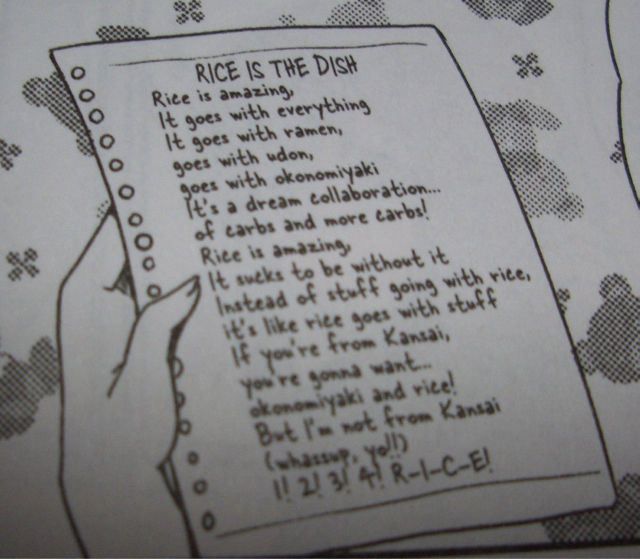 RICE IS THE DISH
Rice is amazing,
It goes with everything
It goes with ramen,
goes with udon,
goes with okonomiyaki
It's a dream collaboration...
of carbs and more carbs!
Rice is amazing,
It sucks to be without it
Instead of stuff going with rice,
it's like rice goes with stuff
If you're from Kansai,
you're gonna want...
okonomiyaki and rice!
But I'm not from Kansai
(whassup, yo!!)
1! 2! 3! 4! R-I-C-E!